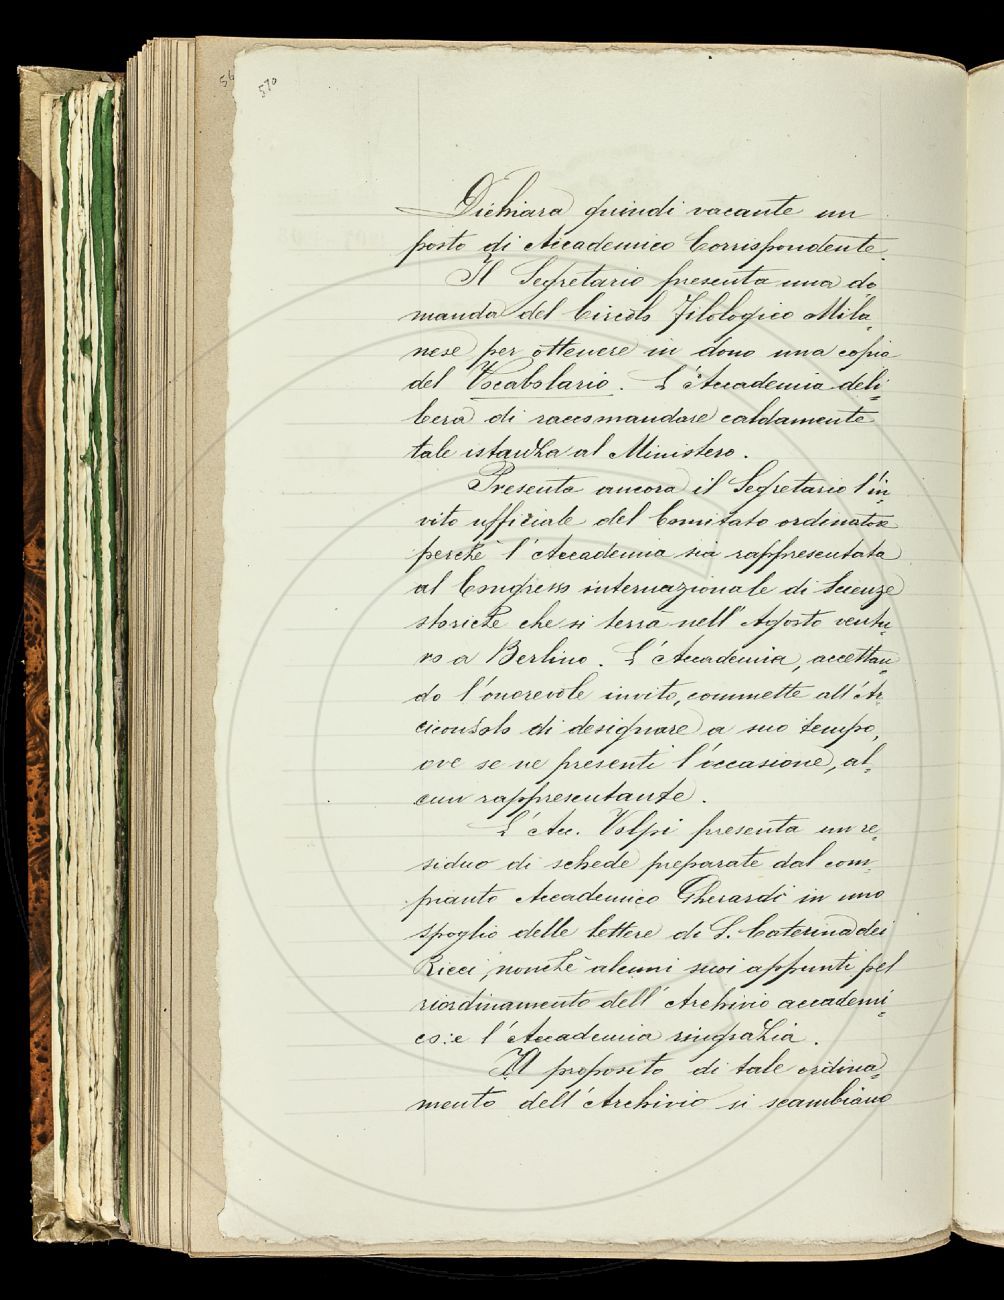 56
570
Dichiara quindi vacante un
posto di Accademico Corrispondente.
Il Segretario presenta una do=
manda del Circolo Filologico Mila=
nese per ottenere in dono una copia
del Vocabolario. L'Accademia deli=
bera di raccomandare caldamente
tale istanza al Ministero.
Presenta ancora il Segretario l'in=
vito ufficiale del Comitato ordinatore
perchè l'Accademia sia rappresentata
al Congresso internazionale di Scienze
storiche che si terrà nell'Agosto ventu=
ro a Berlino. L'Accademia, accettan=
do l'onorevole invito, commette all'Ar=
ciconsolo di designare a suo tempo,
ove se ne presenti l'occasione, al=
cun rappresentante.
L'Acc. Volpi presenta un re=
siduo di schede preparate dal com=
pianto Accademico Gherardi in uno
spoglio delle lettere di S. Caterina dei
Ricci, nonchè alcuni suoi appunti pel
riordinamento dell'Archivio accademi=
co: e l'Accademia ringrazia.
A proposito di tale ordina=
mento dell'Archivio si scambiano